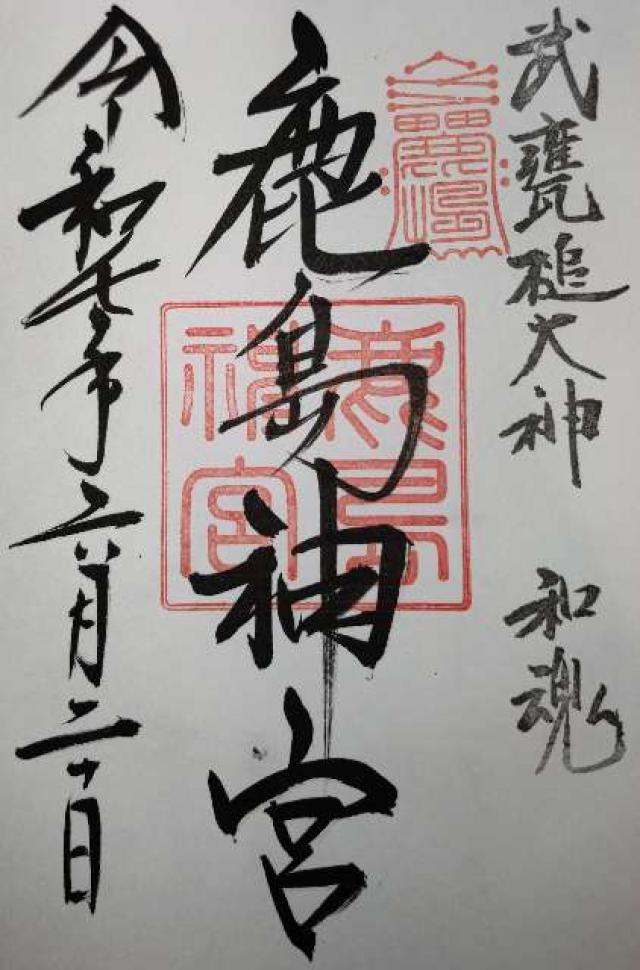 武甕槌大神 和魂
鹿島神宮
鹿島
神宮
令和七年六月二十日